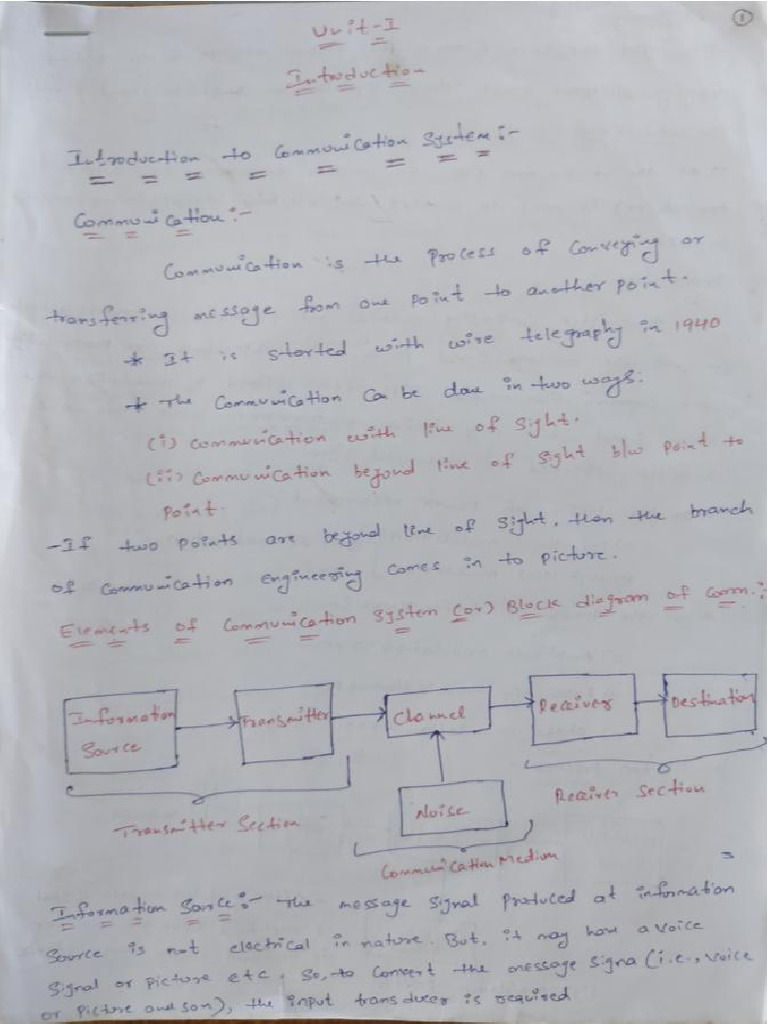 1
Unit-I
Introduction
Introduction to Communication System:-
Communication:-
Communication is the process of conveying or
transferring message from one point to another point.
* It is started with wire telegraphy in 1940
* The Communication Can be done in two ways:
(i) Communication with line of sight.
(ii) Communication beyond line of sight b/w point to
point.
-If two points are beyond line of sight, then the branch
of communication engineering comes in to picture.
Elements of Communication System (or) Block diagram of Comm.:
Information
Source
Transmitter
Channel
Receiver
Destination
Noise
Transmitter Section
Receiver Section
Communication Medium
Information Source:- The message signal produced at information
Source is not electrical in nature. But, it may have a voice
signal or picture etc. So, to Convert the message signa (i.e., voice
or Picture and son), the input transducer is required